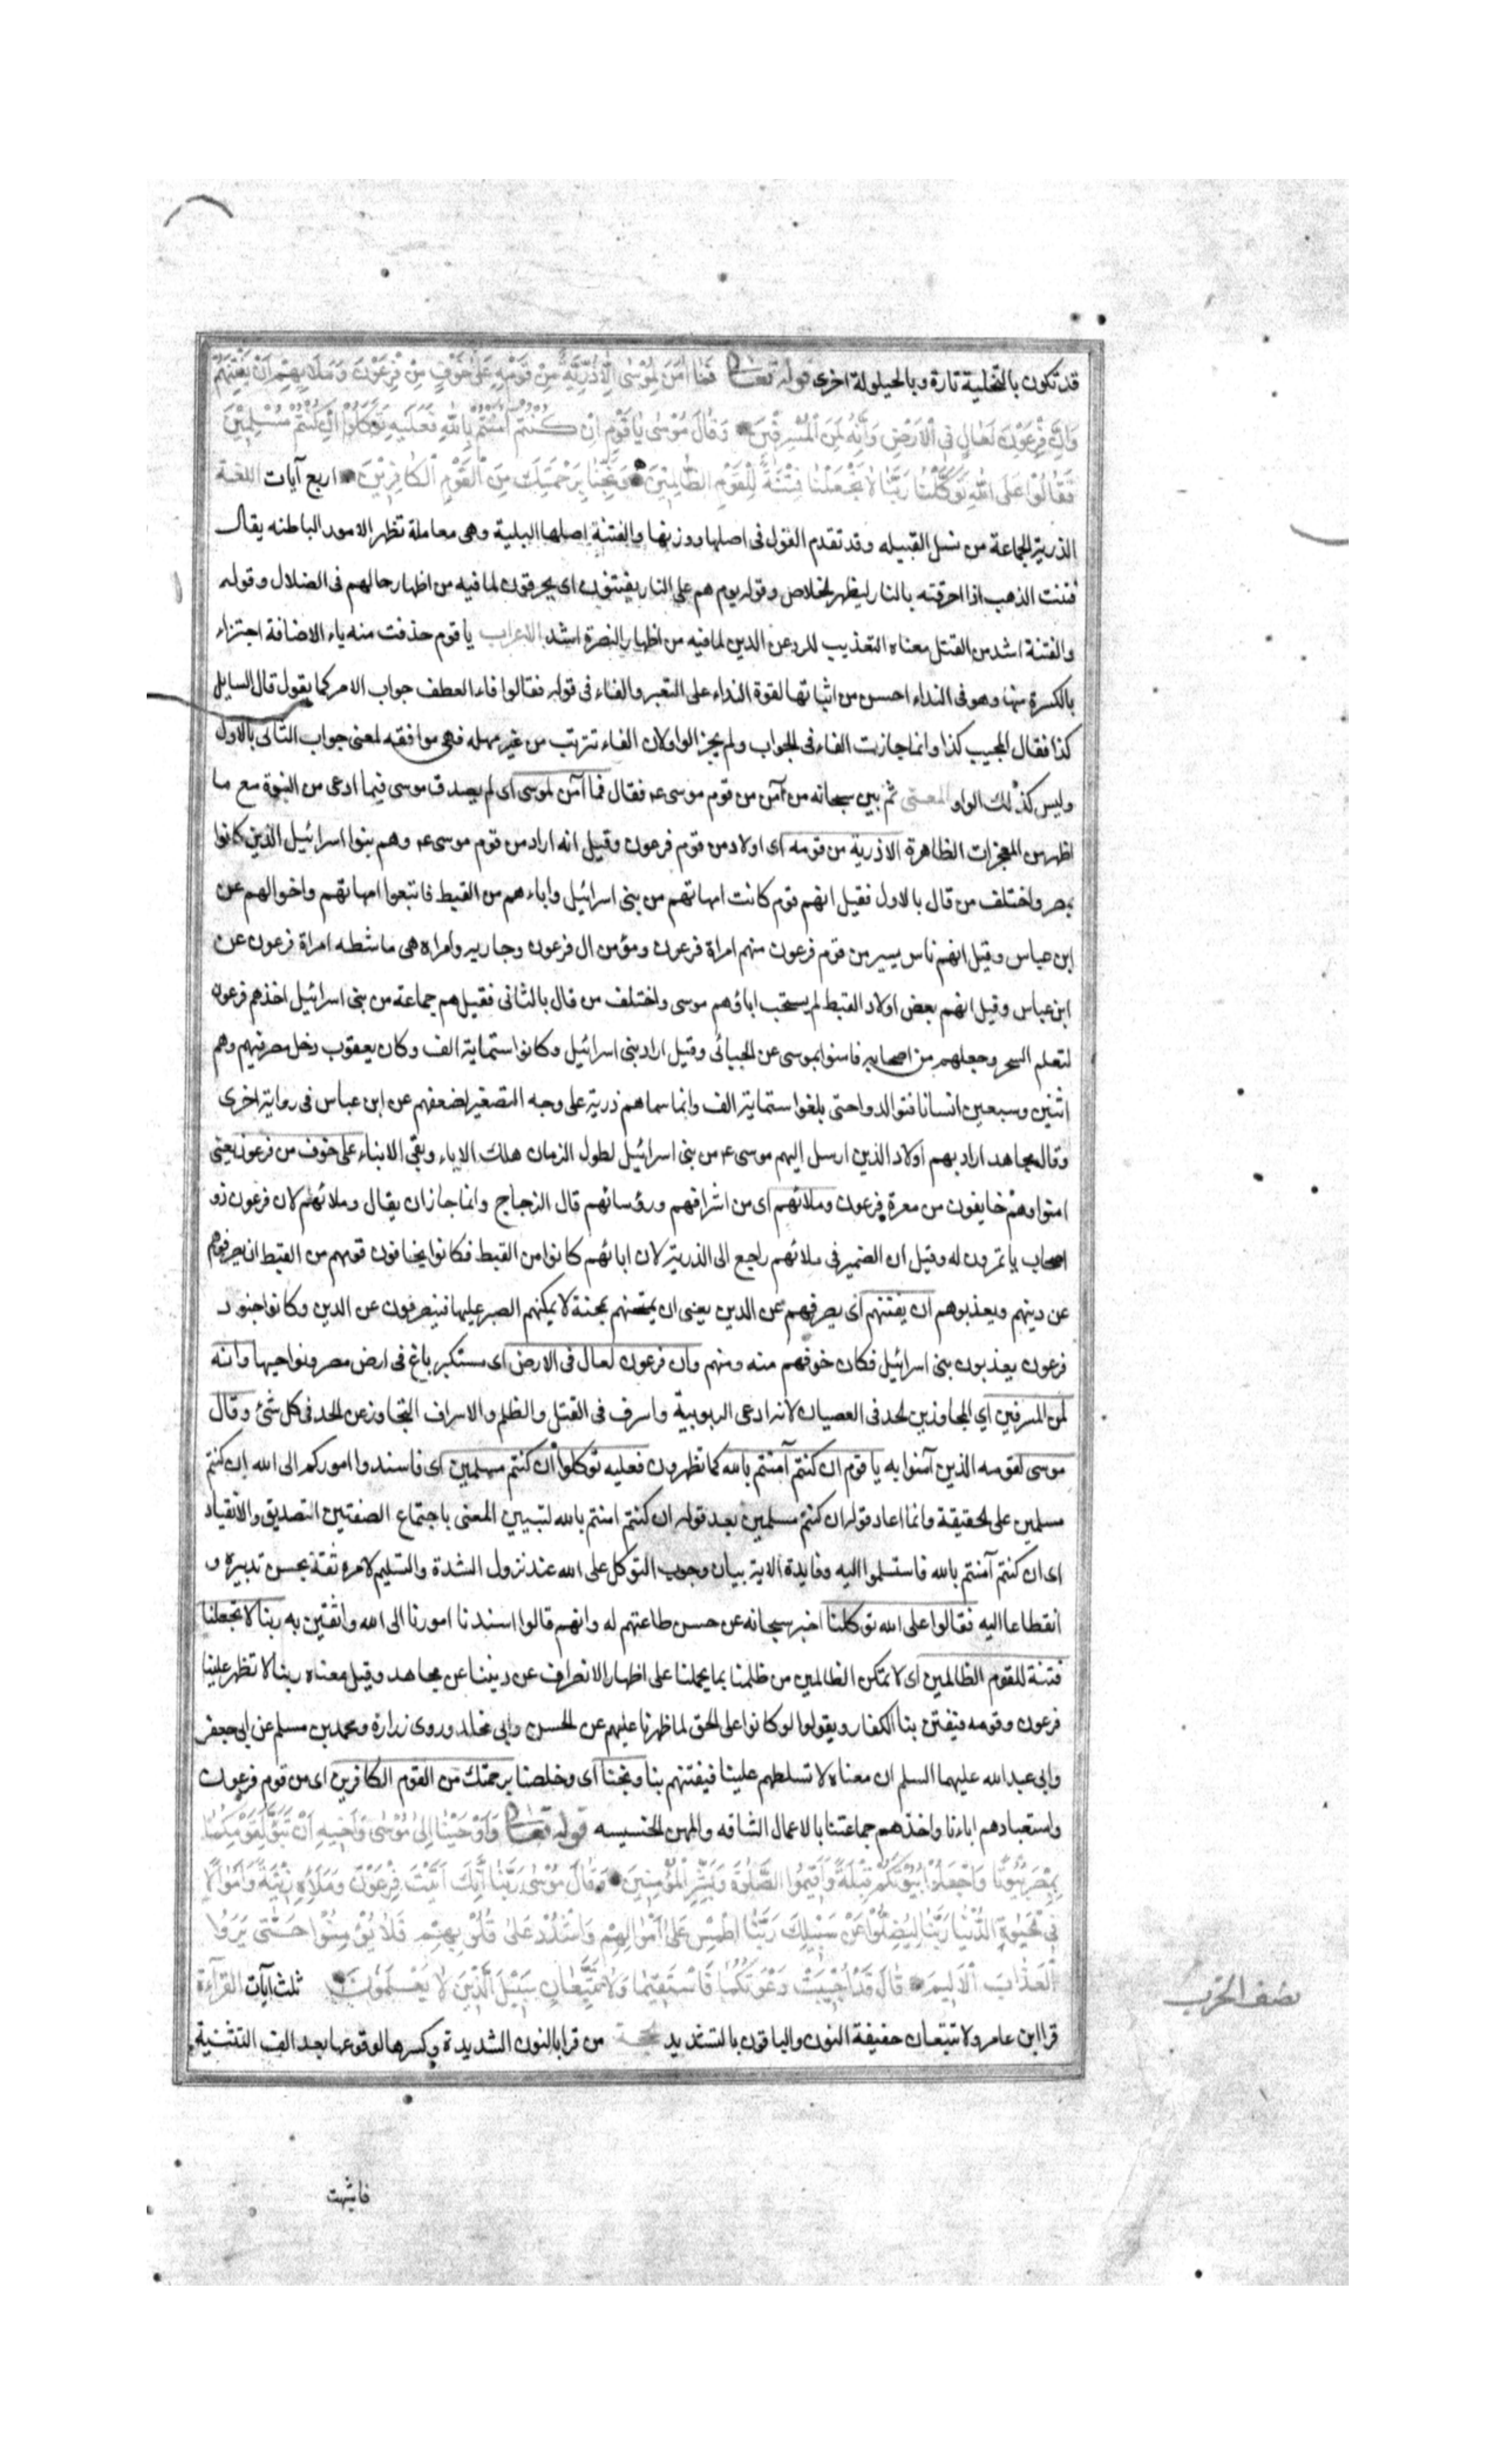 قد تكون بالتخلية تارة وبالحيلولة اخرى قوله تعالى فَمَا اٰمَنَ لِمُوسٰى اِلَّا ذُرِّيَّةٌ مِنْ قَوْمِهِ عَلٰى خَوْفٍ مِنْ فِرْعَوْنَ وَمَلَائِهِمْ اَنْ يَفْتِنَهُمْ
وَاِنَّ فِرْعَوْنَ لَعَالٍ فِي الْاَرْضِ وَاِنَّهُ لَمِنَ الْمُسْرِفِينَ وَقَالَ مُوسٰى يَا قَوْمِ اِنْ كُنْتُمْ اٰمَنْتُمْ بِاللّٰهِ فَعَلَيْهِ تَوَكَّلُوا اِنْ كُنْتُمْ مُسْلِمِينَ
فَقَالُوا عَلَى اللّٰهِ تَوَكَّلْنَا رَبَّنَا لَا تَجْعَلْنَا فِتْنَةً لِلْقَوْمِ الظَّالِمِينَ وَنَجِّنَا بِرَحْمَتِكَ مِنَ الْقَوْمِ الْكَافِرِينَ اربع آيات اللغة
الذرية الجماعة من نسل القبيله وقد تقدم القول فى اصلها ووزنها والفتنة اصلها البلية وهى معاملة تظهر الامور الباطنه يقال
فتنت الذهب اذا احرقته بالنار ليظهر الخلاص وقوله يوم هم على النار يفتنون اى يحرقون لما فيه من اظهار حالهم فى الضلال وقوله
والفتنة اشد من القتل معناه التعذيب للرد عن الدين لما فيه من اظهار النصرة اشد الاعراب يا قوم حذفت منه ياء الاضافة اجتزاء
بالكسرة منها وهو فى النداء احسن من اثباتها لقوة النداء على التغير والفاء فى قوله فقالوا فاء العطف جواب الامر كما يقول قال السايل
كذا فقال المجيب كذا وانما جازت الفاء فى الجواب ولم يجز الواو لان الفاء تترتب من غير مهله فهى موافقه لمعنى جواب التالى بالاول
وليس كذلك الواو المعنى ثم بين سبحانه من آمن من قوم موسى ع فقال فما آمن لموسى اى لم يصدق موسى فيما ادعى من النبوة مع ما
اظهر من المعجزات الظاهرة الا ذرية من قومه اى اولاد من قوم فرعون وقيل انه اراد من قوم موسى ع وهم بنوا اسرائيل الذين كانوا
بمصر واختلف من قال بالاول فقيل انهم قوم كانت امهاتهم من بنى اسرائيل واباءهم من القبط فاتبعوا امهاتهم واخوالهم عن
ابن عباس وقيل انهم ناس يسير من قوم فرعون منهم امراة فرعون ومؤمن ال فرعون وجاريه وامراه هى ماشطه امراة فرعون عن
ابن عباس وقيل انهم بعض اولاد القبط لم يستجب اباؤهم موسى واختلف من قال بالثانى فقيل هم جماعة من بنى اسرائيل اخذهم فرعون
لتعلم السحر وجعلهم من اصحابه فامنوا بموسى عن الجبائى وقيل اراد بنى اسرائيل وكانوا ستماية الف وكان يعقوب دخل مصر فيهم وهم
اثنين وسبعين انسانا فتوالدوا حتى بلغوا ستماية الف وانما سماهم ذرية على وجه التصغير لضعفهم عن ابن عباس فى رواية اخرى
وقال مجاهد اراد بهم اولاد الذين ارسل اليهم موسى ع من بنى اسرائيل لطول الزمان هلك الاباء وبقى الابناء على خوف من فرعون يعنى
امنوا وهم خايفون من معرة فرعون وملائهم اى من اشرافهم ورؤسائهم قال الزجاج وانما جاز ان يقال وملائهم لان فرعون ذو
اصحاب ياتمرون له وقيل ان الضمير فى ملائهم راجع الى الذرية لان ابائهم كانوا من القبط فكانوا يخافون قومهم من القبط ان يصرفوهم
عن دينهم ويعذبوهم ان يفتنهم اى يصرفهم عن الدين يعنى ان يمتحنهم بمحنة لا يمكنهم الصبر عليها فينصرفون عن الدين وكانوا جنود
فرعون يعذبون بنى اسرائيل فكان خوفهم منه ومنهم وان فرعون لعال فى الارض اى مستكبر باغ فى ارض مصر ونواحيها وانه
لمن المسرفين اي المجاوزين الحد فى العصيان لانه ادعى الربوبية واسرف فى القتل والظلم والاسراف التجاوز عن الحد فى كل شئ وقال
موسى لقومه الذين آمنوا به يا قوم ان كنتم آمنتم بالله كما تظهرون فعليه توكلوا ان كنتم مسلمين اى فاسندوا اموركم الى الله ان كنتم
مسلمين على الحقيقة وانما اعاد قوله ان كنتم مسلمين بعد قوله ان كنتم امنتم بالله لتبيين المعنى باجتماع الصفتين التصديق والانقياد
اى ان كنتم آمنتم بالله فاستسلموا اليه وفايدة الاية بيان وجوب التوكل على الله عند نزول الشدة والتسليم لامره ثقة بحسن تدبيره و
انقطاعا اليه فقالوا على الله توكلنا اخبر سبحانه عن حسن طاعتهم له وانهم قالوا اسندنا امورنا الى الله واثقين به ربنا لا تجعلنا
فتنة للقوم الظالمين اى لا تمكن الظالمين من ظلمنا بما يحملنا على اظهار الانصراف عن ديننا عن مجاهد وقيل معناه ربنا لا تظهر علينا
فرعون وقومه فيفتتن بنا الكفار ويقولوا لو كانوا على الحق لما ظهرنا عليهم عن الحسن وابى مخلد وروى زرارة ومحمد بن مسلم عن ابى جعفر
وابى عبدالله عليهما السلم ان معناه لا تسلطهم علينا فيفتنهم بنا ونجنا اى وخلصنا برحمتك من القوم الكافرين اى من قوم فرعون
واستعبادهم اباءنا واخذهم جماعتنا بالاعمال الشاقه والمهن الخسيسه قوله تعالى وَاَوْحَيْنَا اِلٰى مُوسٰى وَاَخِيهِ اَنْ تَبَوَّاٰ لِقَوْمِكُمَا
بِمِصْرَ بُيُوتًا وَاجْعَلُوا بُيُوتَكُمْ قِبْلَةً وَاَقِيمُوا الصَّلٰوةَ وَبَشِّرِ الْمُؤْمِنِينَ وَقَالَ مُوسٰى رَبَّنَا اِنَّكَ اٰتَيْتَ فِرْعَوْنَ وَمَلَاَهُ زِينَةً وَاَمْوَالًا
فِي الْحَيٰوةِ الدُّنْيَا رَبَّنَا لِيُضِلُّوا عَنْ سَبِيلِكَ رَبَّنَا اطْمِسْ عَلٰى اَمْوَالِهِمْ وَاشْدُدْ عَلٰى قُلُوبِهِمْ فَلَا يُؤْمِنُوا حَتّٰى يَرَوُا
الْعَذَابَ الْاَلِيمَ قَالَ قَدْ اُجِيبَتْ دَعْوَتُكُمَا فَاسْتَقِيمَا وَلَا تَتَّبِعَانِّ سَبِيلَ الَّذِينَ لَا يَعْلَمُونَ ثلث آيات القرآءة
نصف الحزب
قرا ابن عامر ولا تتبعان خفيفة النون والباقون بالتشديد من قرا بالنون الشديدة وكسرها لوقوعها بعد الف التثنية
فاشبهت